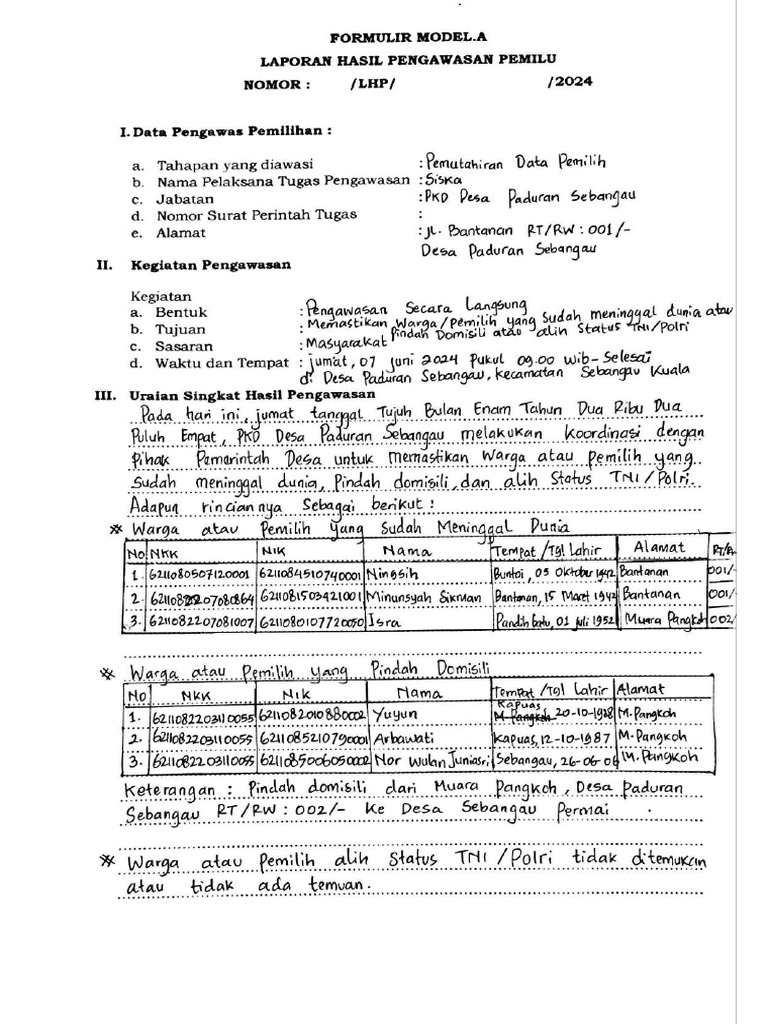 FORMULIR MODEL.A
LAPORAN HASIL PENGAWASAN PEMILU
NOMOR : /LHP/ /2024
I. Data Pengawas Pemilihan :
a. Tahapan yang diawasi : Pemutahiran Data Pemilih
b. Nama Pelaksana Tugas Pengawasan : Siska
c. Jabatan : PKD Desa Paduran Sebangau
d. Nomor Surat Perintah Tugas :
e. Alamat : Jl. Bantanan RT/RW : 001/-
Desa Paduran Sebangau
II. Kegiatan Pengawasan
Kegiatan
a. Bentuk : Pengawasan Secara Langsung
b. Tujuan : Memastikan Warga/pemilih yang sudah meninggal dunia atau
Pindah Domisili atau alih Status TNI/Polri
c. Sasaran : Masyarakat
d. Waktu dan Tempat : jumat, 07 juni 2024 Pukul 09.00 Wib - Selesai
di Desa Paduran Sebangau, kecamatan Sebangau Kuala
III. Uraian Singkat Hasil Pengawasan
Pada hari ini, jumat tanggal Tujuh Bulan Enam Tahun Dua Ribu Dua
Puluh Empat, PKD Desa Paduran Sebangau melakukan koordinasi dengan
Pihak Pemerintah Desa untuk memastikan Warga atau pemilih yang
Sudah meninggal dunia, Pindah domisili, dan alih Status TNI/Polri.
Adapun rinciannya Sebagai berikut :
※ Warga atau Pemilih Yang Sudah Meninggal Dunia
No NKK NIK Nama Tempat/Tgl Lahir Alamat
1. 6211080507120001 6211084510740001 Ningsih Buntoi, 05 Oktober 1942 Bantanan 001/-
2. 6211081503421001 Minunsyah Sikman Bantanan, 15 Maret 1942 Bantanan 001/-
3. 6211082207081007 6211080107720050 Isra Pandih batu, 01 juli 1952 Muara Pangkoh 002/
※ Warga atau Pemilih yang Pindah Domisili
No NKK NIK Nama Tempat/Tgl Lahir Alamat
1. 6211082203110055 6211082010880002 Yuyun Kapuas M. Pangkoh 20-10-1988 M. Pangkoh
2. 6211082203110055 6211085210790001 Arbawati Kapuas, 12-10-1987 M. Pangkoh
3. 6211082203110055 6211085006050002 Nor Wulan Juniasri Sebangau, 26-06-06 M. Pangkoh
Keterangan : Pindah domisili dari Muara Pangkoh, Desa Paduran
Sebangau RT/RW : 002/- Ke Desa Sebangau Permai .
※ Warga atau Pemilih alih Status TNI/Polri tidak ditemukan
atau tidak ada temuan.